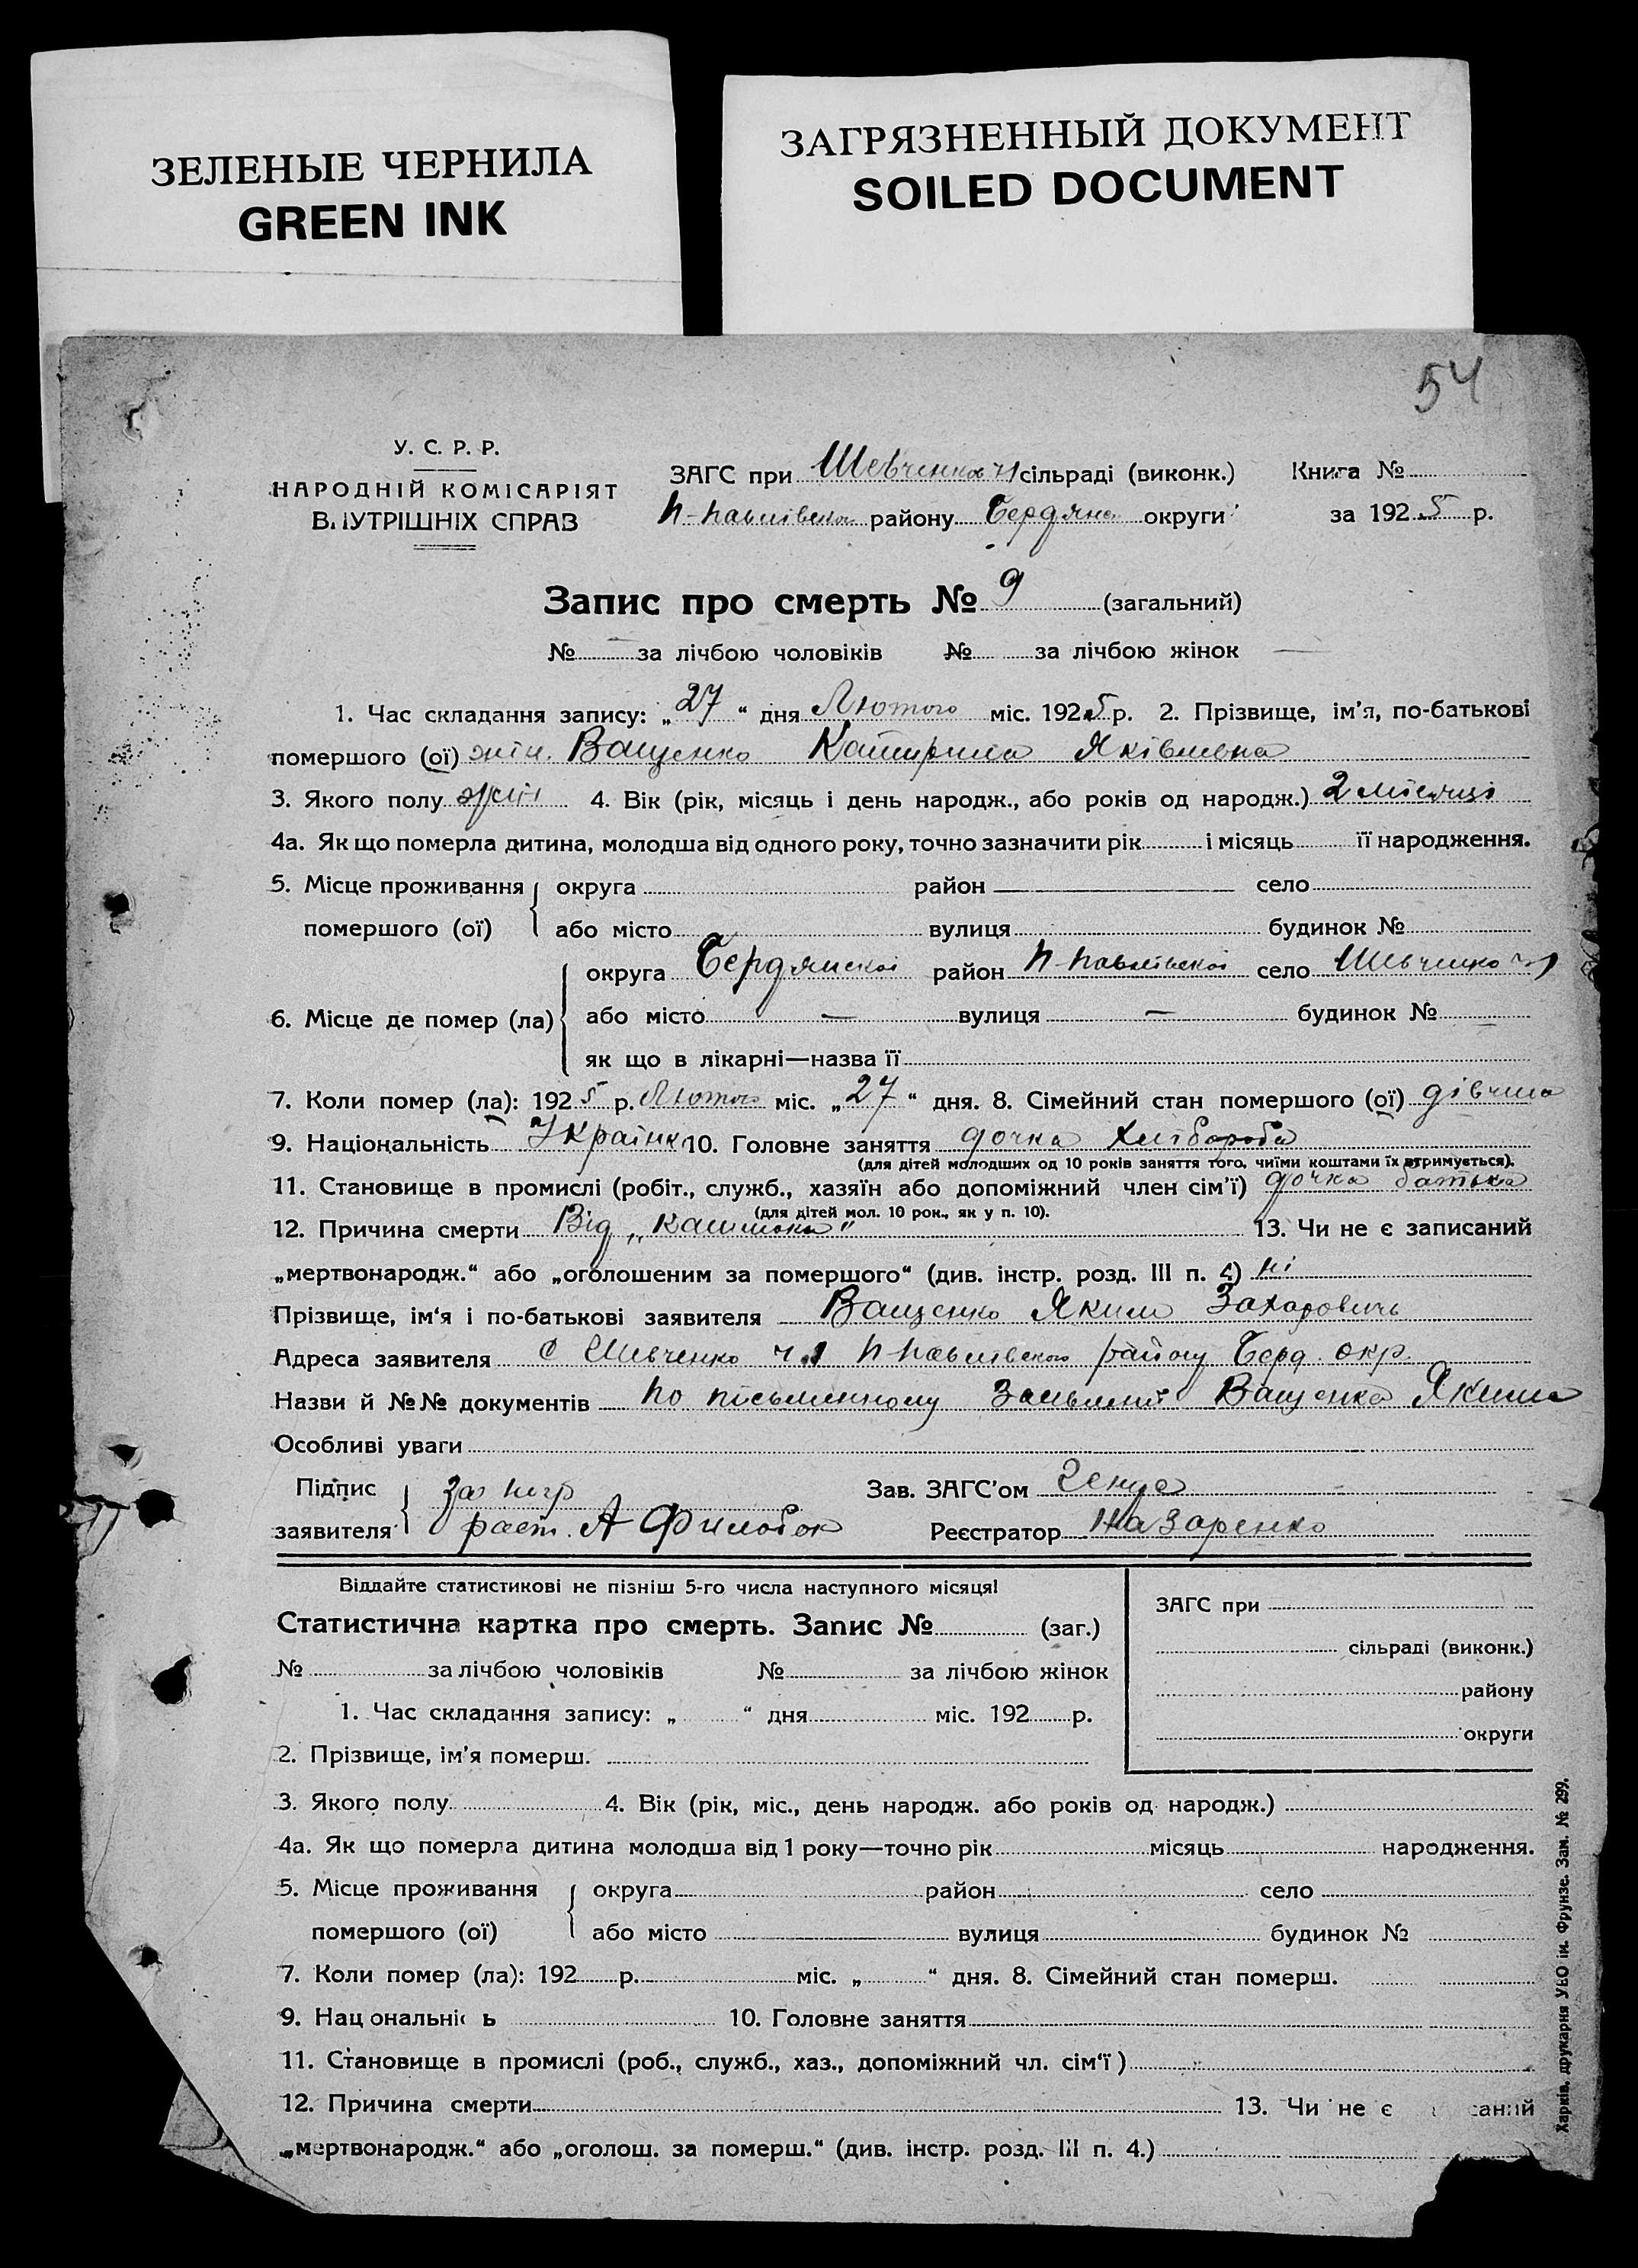 ЗЕЛЕНЫЕ ЧЕРНИЛА
GREEN INK
ЗАГРЯЗНЕННЫЙ ДОКУМЕНТ
SOILED DOCUMENT
54
У. С. Р. Р.
НАРОДНІЙ КОМІСАРІЯТ
ВНУТРІШНІХ СПРАВ
ЗАГС при Шевченко ч1 сільраді (виконк.) Книга №
Н-Павлівська району Бердянс округи за 1925 р.
Запис про смерть № 9 (загальний)
№ — за лічбою чоловіків № за лічбою жінок —
1. Час складання запису: „27“ дня Лютого міс. 1925 р. 2. Прізвище, ім'я, по-батькові
помершого (ої) жін. Ващенко Катирина Яківлевна
3. Якого полу жін 4. Вік (рік, місяць і день народж., або років од народж.) 2 місяці
4а. Як що померла дитина, молодша від одного року, точно зазначити рік і місяць її народження.
5. Місце проживання округа район село
помершого (ої) або місто вулиця будинок №
округа Бердянскої район Н-Павлівскої село Шевченко ч1
6. Місце де помер (ла) або місто — вулиця — будинок № —
як що в лікарні—назва її
7. Коли помер (ла): 1925 р. Лютого міс. „27“ дня. 8. Сімейний стан помершого (ої) дівчина
9. Національність Українк 10. Головне заняття дочка Хлібороба
(для дітей молодших од 10 років заняття того, чиїми коштами їх отримується).
11. Становище в промислі (робіт., служб., хазяїн або допоміжний член сім'ї) дочка батька
(для дітей мол. 10 рок., як у п. 10).
12. Причина смерти Від „Кашлюка“ 13. Чи не є записаний
„мертвонародж.“ або „оголошеним за помершого“ (див. інстр. розд. III п. 4) ні
Прізвище, ім'я і по-батькові заявителя Ващенко Яким Захарович
Адреса заявителя с Шевченко ч.1 Н-Павлівского району Берд. окр.
Назви й №№ документів по письменному Ващенка Якима
Особливі уваги
Підпис за негр Зав. ЗАГС'ом
заявителя расп. А Филобок Реєстратор Назаренко
Віддайте статистикові не пізніш 5-го числа наступного місяця!
Статистична картка про смерть. Запис № (заг.)
№ за лічбою чоловіків № за лічбою жінок
1. Час складання запису: „ “ дня міс. 192 р.
2. Прізвище, ім'я померш.
ЗАГС при
сільраді (виконк.)
району
округи
3. Якого полу 4. Вік (рік, міс., день народж. або років од народж.)
4а. Як що померла дитина молодша від 1 року—точно рік місяць народження.
5. Місце проживання округа район село
помершого (ої) або місто вулиця будинок №
7. Коли помер (ла): 192 р. міс. „ “ дня. 8. Сімейний стан померш.
9. Нац ональніс ь 10. Головне заняття
11. Становище в промислі (роб., служб., хаз., допоміжний чл. сім'ї)
12. Причина смерти 13. Чи не є саний
„мертвонародж.“ або „оголош. за померш.“ (див. інстр. розд. III п. 4.)
Харків, друкарня УВО ім. Фрунзе. Зам. № 299.